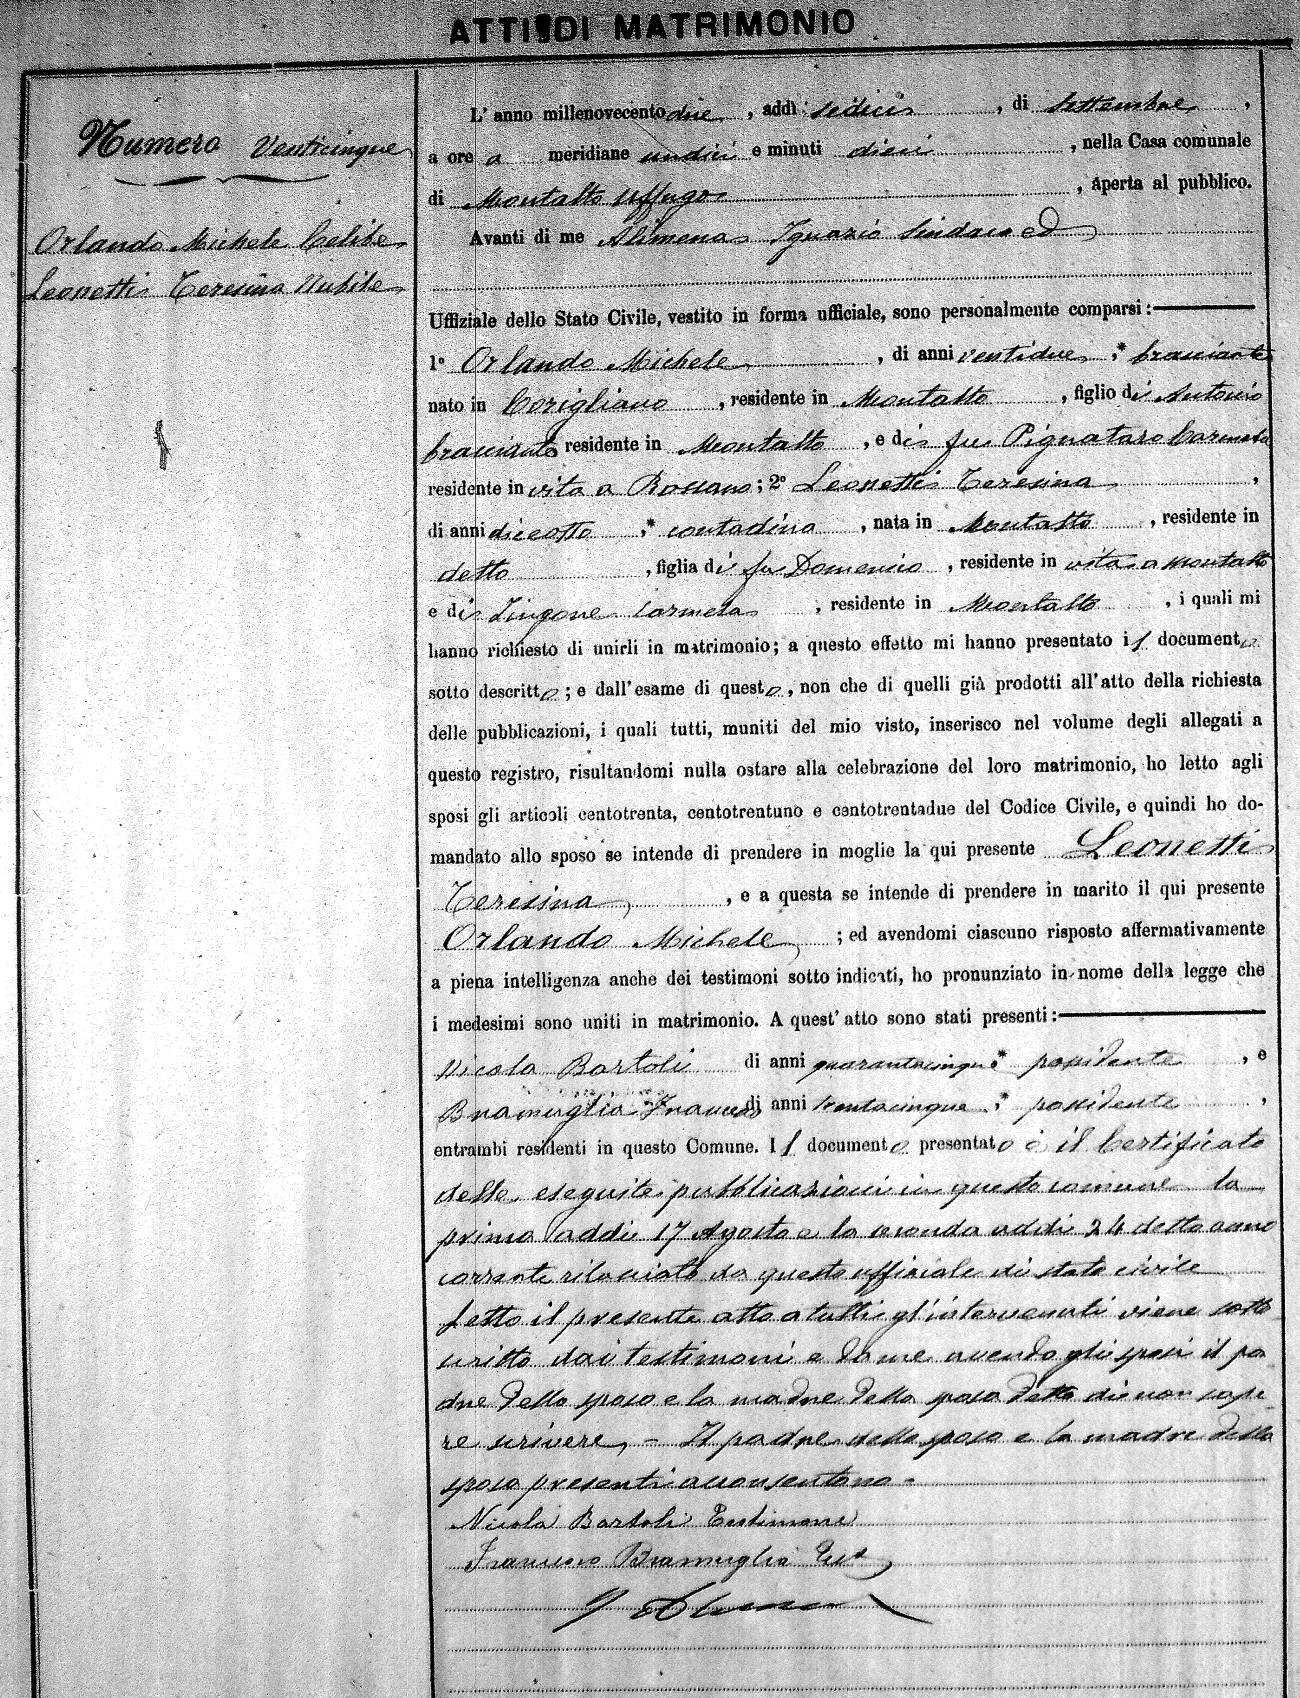 ATTI DI MATRIMONIO
Numero Venticinque
Orlando Michele Celibe
Leonetti Teresina Nubile
L'anno millenovecento due, addì sedici, di Settembre,
a ore a meridiane undici e minuti dieci, nella Casa comunale
di Montalto Uffugo, aperta al pubblico.
Avanti di me Alimena Ignazio Sindaco ed
Uffiziale dello Stato Civile, vestito in forma ufficiale, sono personalmente comparsi:
1º Orlando Michele, di anni ventidue, * bracciante
nato in Corigliano, residente in Montalto, figlio di Antonio
bracciante residente in Montalto, e di fu Pignataro Carmela
residente in vita a Rossano; 2º Leonetti Teresina,
di anni diciotto, * contadina, nata in Montalto, residente in
detto, figlia di fu Domenico, residente in vita a Montalto
e di Zingone Carmela, residente in Montalto, i quali mi
hanno richiesto di unirli in matrimonio; a questo effetto mi hanno presentato il documento
sotto descritto; e dall'esame di questo, non che di quelli già prodotti all'atto della richiesta
delle pubblicazioni, i quali tutti, muniti del mio visto, inserisco nel volume degli allegati a
questo registro, risultandomi nulla ostare alla celebrazione del loro matrimonio, ho letto agli
sposi gli articoli centotrenta, centotrentuno e centotrentadue del Codice Civile, e quindi ho do-
mandato allo sposo se intende di prendere in moglie la qui presente Leonetti
Teresina, e a questa se intende di prendere in marito il qui presente
Orlando Michele; ed avendomi ciascuno risposto affermativamente
a piena intelligenza anche dei testimoni sotto indicati, ho pronunziato in nome della legge che
i medesimi sono uniti in matrimonio. A quest'atto sono stati presenti:
Nicola Bartoli di anni quarantacinque, * possidente, e
Bramuglia Francesco di anni trentacinque, * possidente,
entrambi residenti in questo Comune. Il documento presentato è il Certificato
delle eseguite pubblicazioni in questo comune la
prima addì 17 Agosto e la seconda addì 24 detto anno
corrente rilasciato da questo uffiziale di stato civile
Letto il presente atto a tutti gl'intervenuti viene sotto
scritto dai testimoni e da me avendo gli sposi il pa
dre dello sposo e la madre della sposa detto di non sape
re scrivere, - Il padre dello sposo e la madre della
sposa presenti acconsentono -
Nicola Bartoli Testimone
Francesco Bramuglia